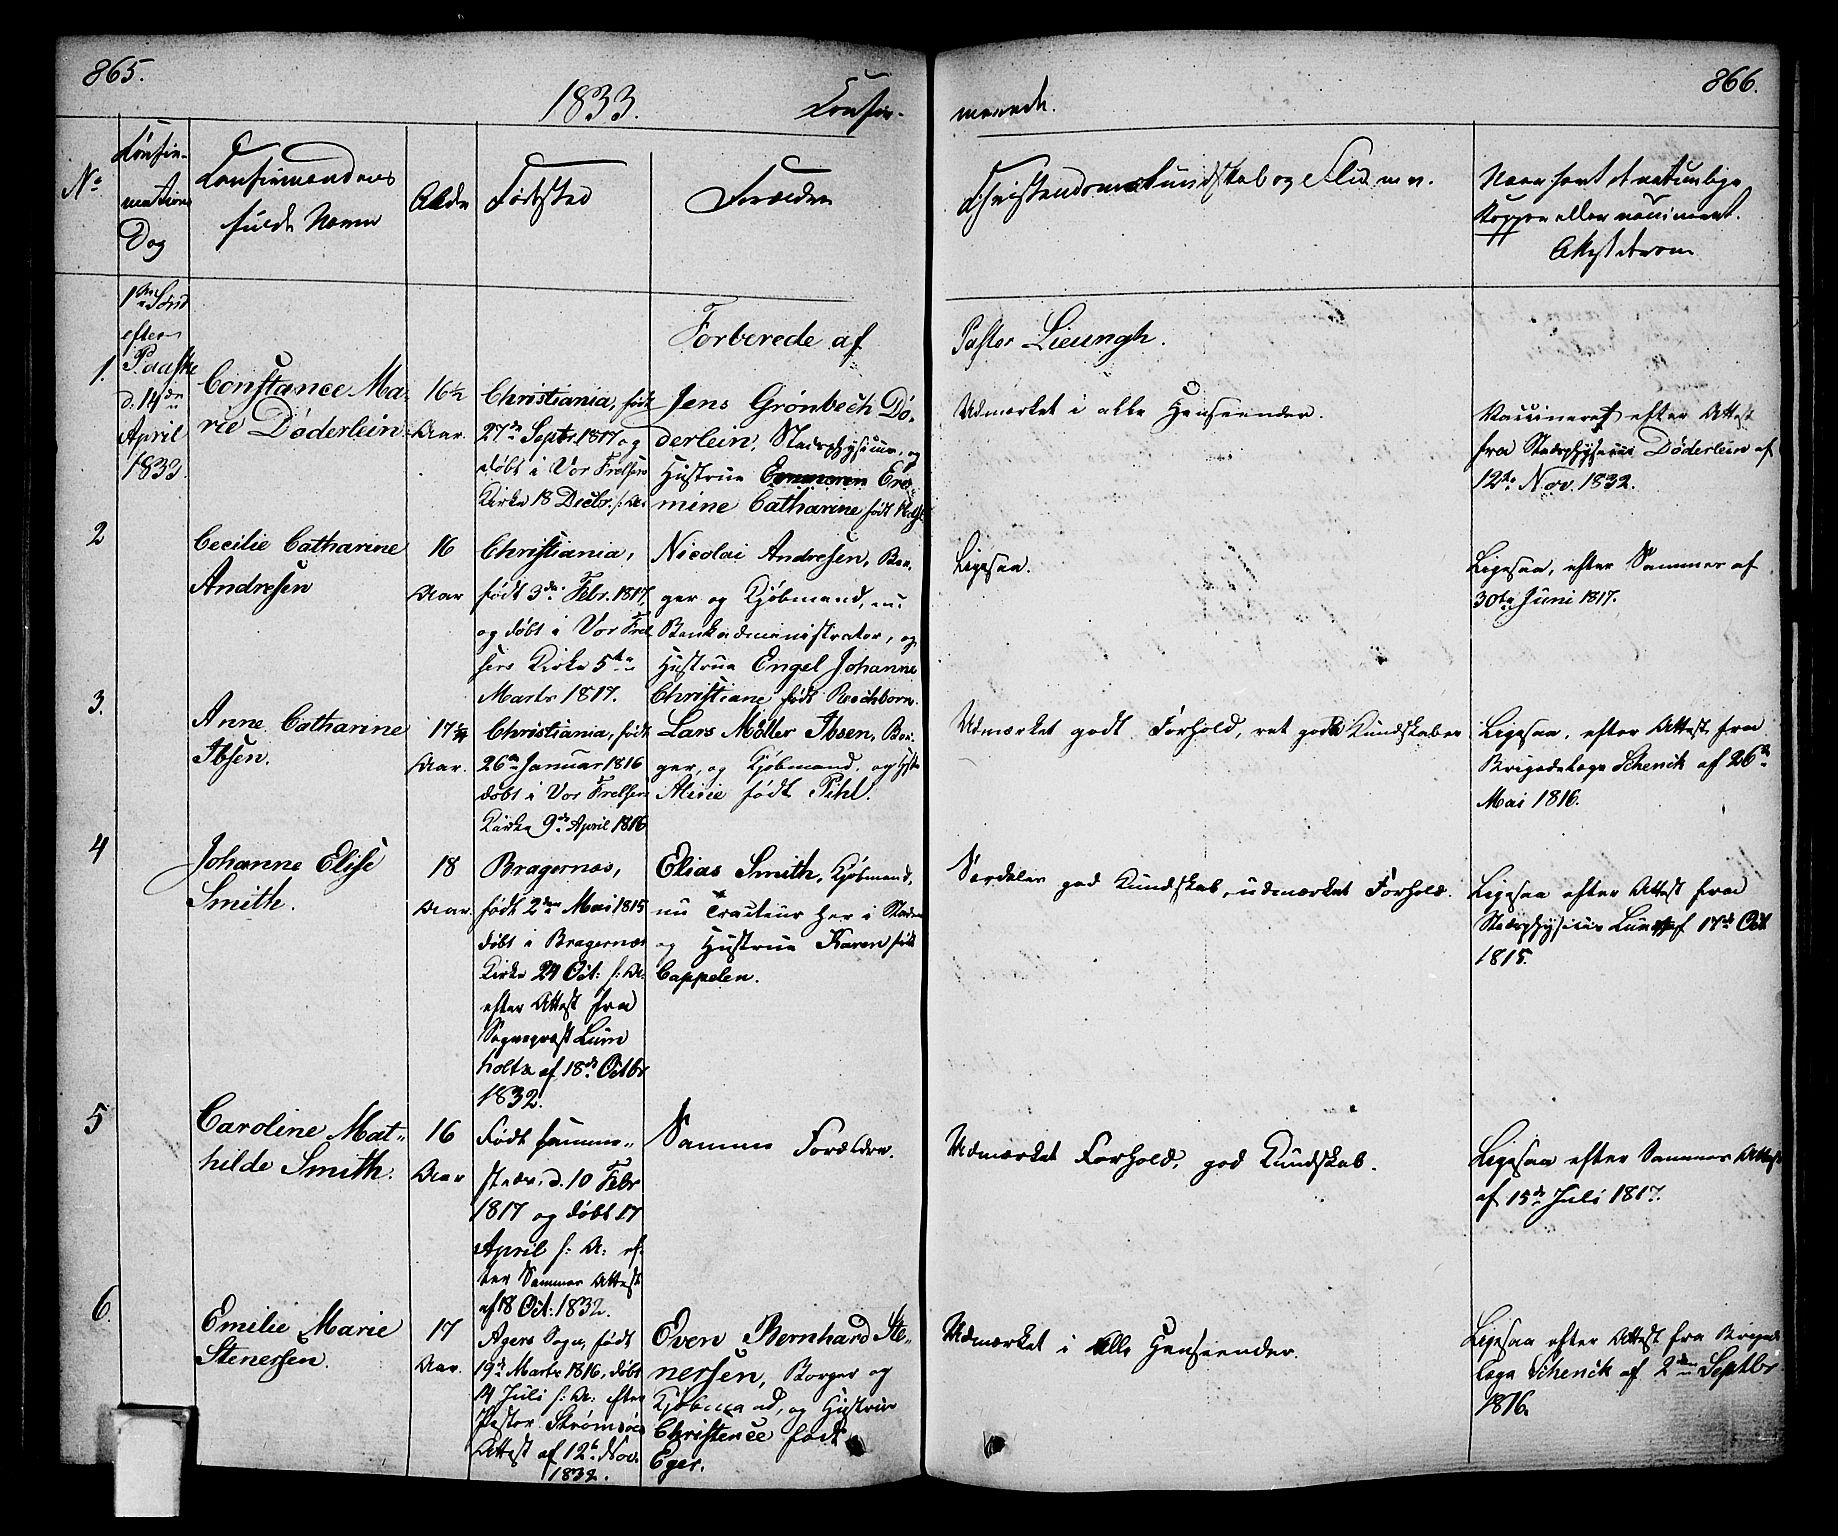 865.
1833.
Confir-
No
Confir-
mations
Dag
Confirmandens
fulde Navn
Alder
Fødested
Forældre
1ste Sønd
efter
Paaske
d. 14de
April
1833.
Forberede af
1.
Constance Ma-
rie Døderlein.
16½
Aar.
Christiania, født
27de Septr. 1817 og
døbt i Vor Frelsers
Kirke 18 Decbr. s: A:
Jens Grønbech Dø-
derlein, Stadsphysicus, og
Hustrue Ero
mine Catharine født
2
Cecilie Catharine
Andresen
16
Aar
Christiania,
født 3de Febr. 1817,
og døbt i Vor Frel
sers Kirke 5te
Marts 1817.
Nicolai Andresen, Bor-
ger og Kjøbmand, nu
Bankadministrator, og
Hustrue Engel Johanne
Christiane født Reichborn.
3.
Anne Catharine
Ibsen.
17¼
Aar.
Christiania, født
26de Januar 1816
døbt i Vor Frelsers
Kirke 9de April 1816
Lars Møller Ibsen, Bor-
ger og Kjøbmand, og Hstr
Alicie født Pihl.
4
Johanne Elise
Smith.
18
Aar.
Bragernæs,
født 2den Mai 1815
døbt i Bragernæs
Kirke 24 Oct: s: A:
efter Attest fra
Sognepræst Lum
holtz af 18de Octbr
1832.
Elias Smith, Kjøbmand,
nu Tracteur her i Staden
og Hustrue Karen født
Cappelen.
5
Caroline Mat-
hilde Smith.
16
Aar
Født samme-
sted, d. 10 Febr
1817 og døbt 17
April s: A: ef-
ter Sammes Attest
af 18 Oct: 1832.
Samme Forældre.
6.
Emilie Marie
Stenersen.
17
Aar.
Agers Sogn, født
19de Marts 1816, døbt
14 Juli s: A: efter
Pastor Strømsøes
Attest af 12te Nov.
1832.
Even Bernhard Ste-
nersen, Borger og
Kjøbmand, og Hustrue
Christence født
Eger.
866.
merede.
Christendomskundskab og Flid m. v.
Naar havt de naturlige
Kopper eller vaccineret.
Attest derom
Pastor Lieungh.
Udmærket i alle Henseender.
Vaccineret efter Attest
fra Stadsphysicus Døderlein af
12te Nov. 1832.
Ligesaa.
Ligesaa, efter Sammes af
30te Juni 1817.
Udmærket godt Forhold, ret gode Kundskaber
Ligesaa, efter Attest fra
Brigadelæge Schenck af 26de
Mai 1816.
Særdeles god Kundskab, udmærket Forhold.
Ligesaa efter Attest fra
Stadsphysicus Lund af 17de Oct
1815.
Udmærket Forhold, god Kundskab.
Ligesaa efter Sammes Attest
af 15de Juli 1817.
Udmærket i Alle Henseender.
Ligesaa efter Attest fra Brigade
læge Schenck af 2den Septbr
1816.